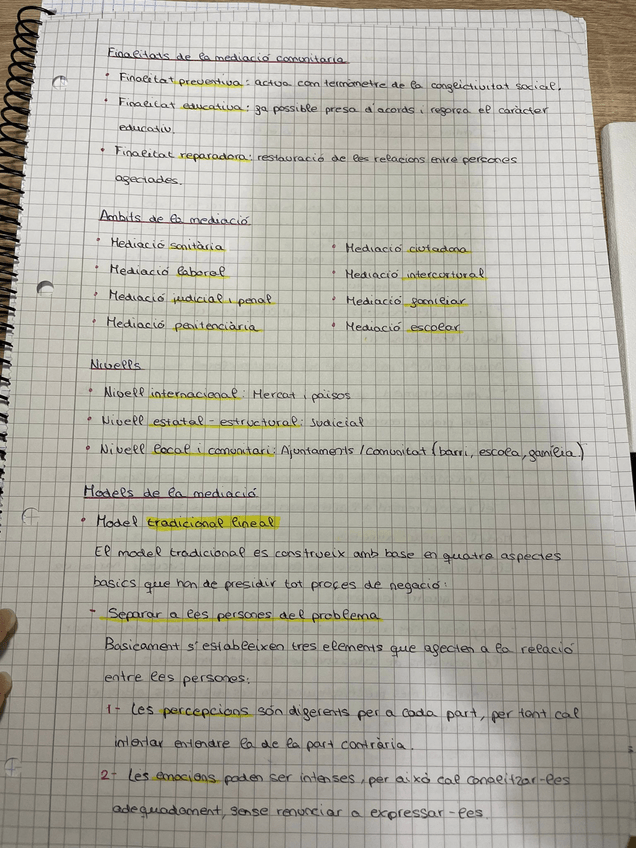 Finalitats de la mediació comunitaria
• Finalitat preventiva: actua com termòmetre de la conflictivitat social.
• Finalitat educativa: fa possible presa d'acords i reforça el caràcter
educatiu.
• Finalitat reparadora: restauració de les relacions entre persones
afectades.
Àmbits de la mediació
• Mediació sanitària
• Mediació laboral
• Mediació judicial i penal
• Mediació penitenciària
• Mediació ciutadana
• Mediació intercortural
• Mediació familiar
• Mediació escolar
Nivells
• Nivell internacional: Mercat i països
• Nivell estatal - estructural: Judicial
• Nivell local i comunitari: Ajuntaments / comunitat (barri, escola, família)
Models de la mediació
• Model tradicional lineal
El model tradicional es construeix amb base en quatre aspectes
basics que han de presidir tot proces de negació:
- Separar a les persones del problema
Basicament s'estableixen tres elements que afecten a la relació
entre les persones:
1- Les percepcions són diferents per a cada part, per tant cal
intentar entendre la de la part contrària.
2- Les emocions poden ser intenses, per això cal canalitzar-les
adequadament, sense renunciar a expressar-les.